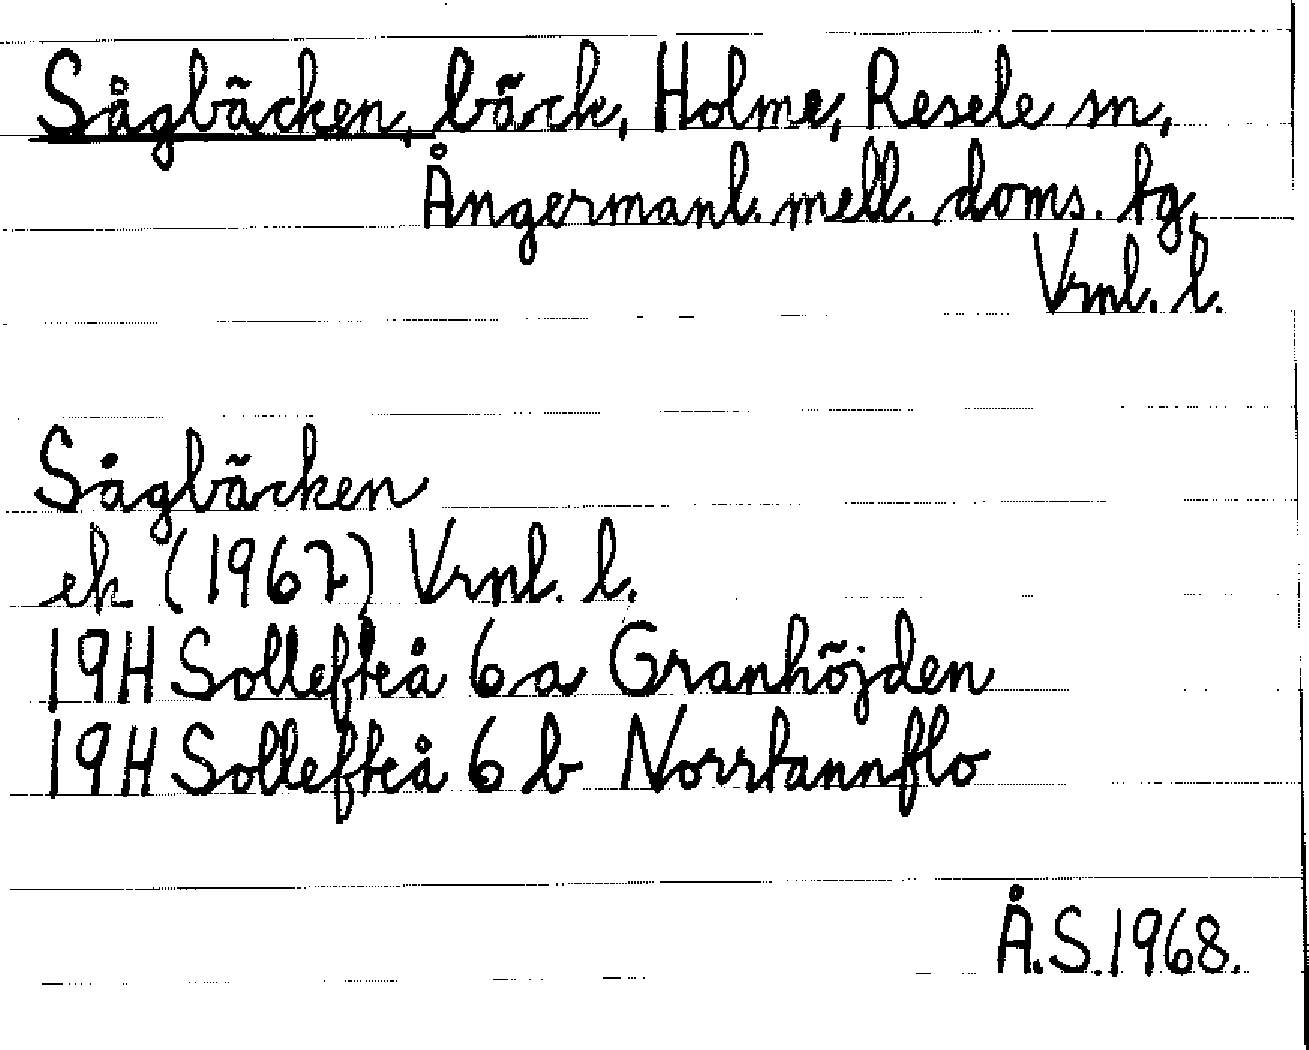 Sågbäcken, bäck, Holme, Resele sn,
Ångermanl. mell. doms. tg,
Vrnl. l.
Sågbäcken
ek (1967) Vrnl. l.
19H Sollefteå 6 a Granhöjden
19H Sollefteå 6 b Norrtannflo
Å.S.1968.